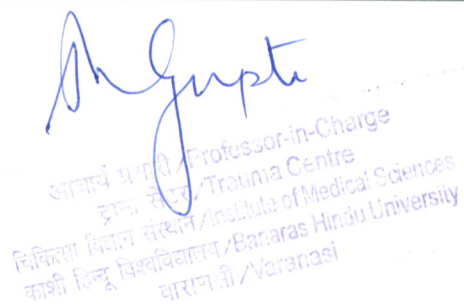 Gupta
आचार्य प्रभारी/Professor-in-Charge
ट्रामा सेन्टर/Trauma Centre
चिकित्सा विज्ञान संस्थान/Institute of Medical Sciences
काशी हिन्दू विश्वविद्यालय/Banaras Hindu University
वाराणसी/Varanasi